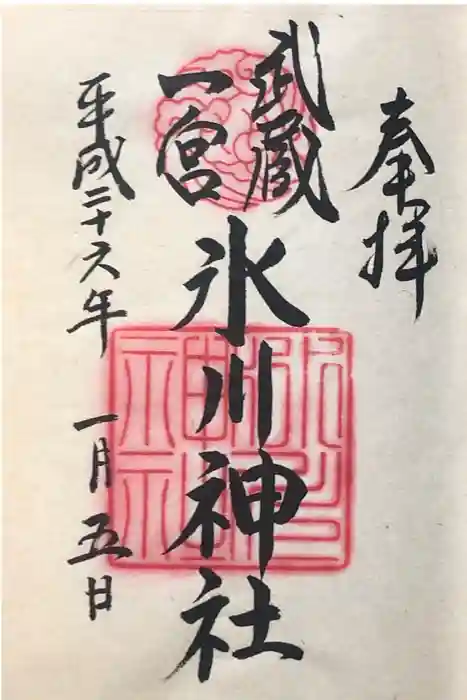 奉拝
武蔵
一宮
氷川神社
平成二十六年 一月五日
氷川
神社